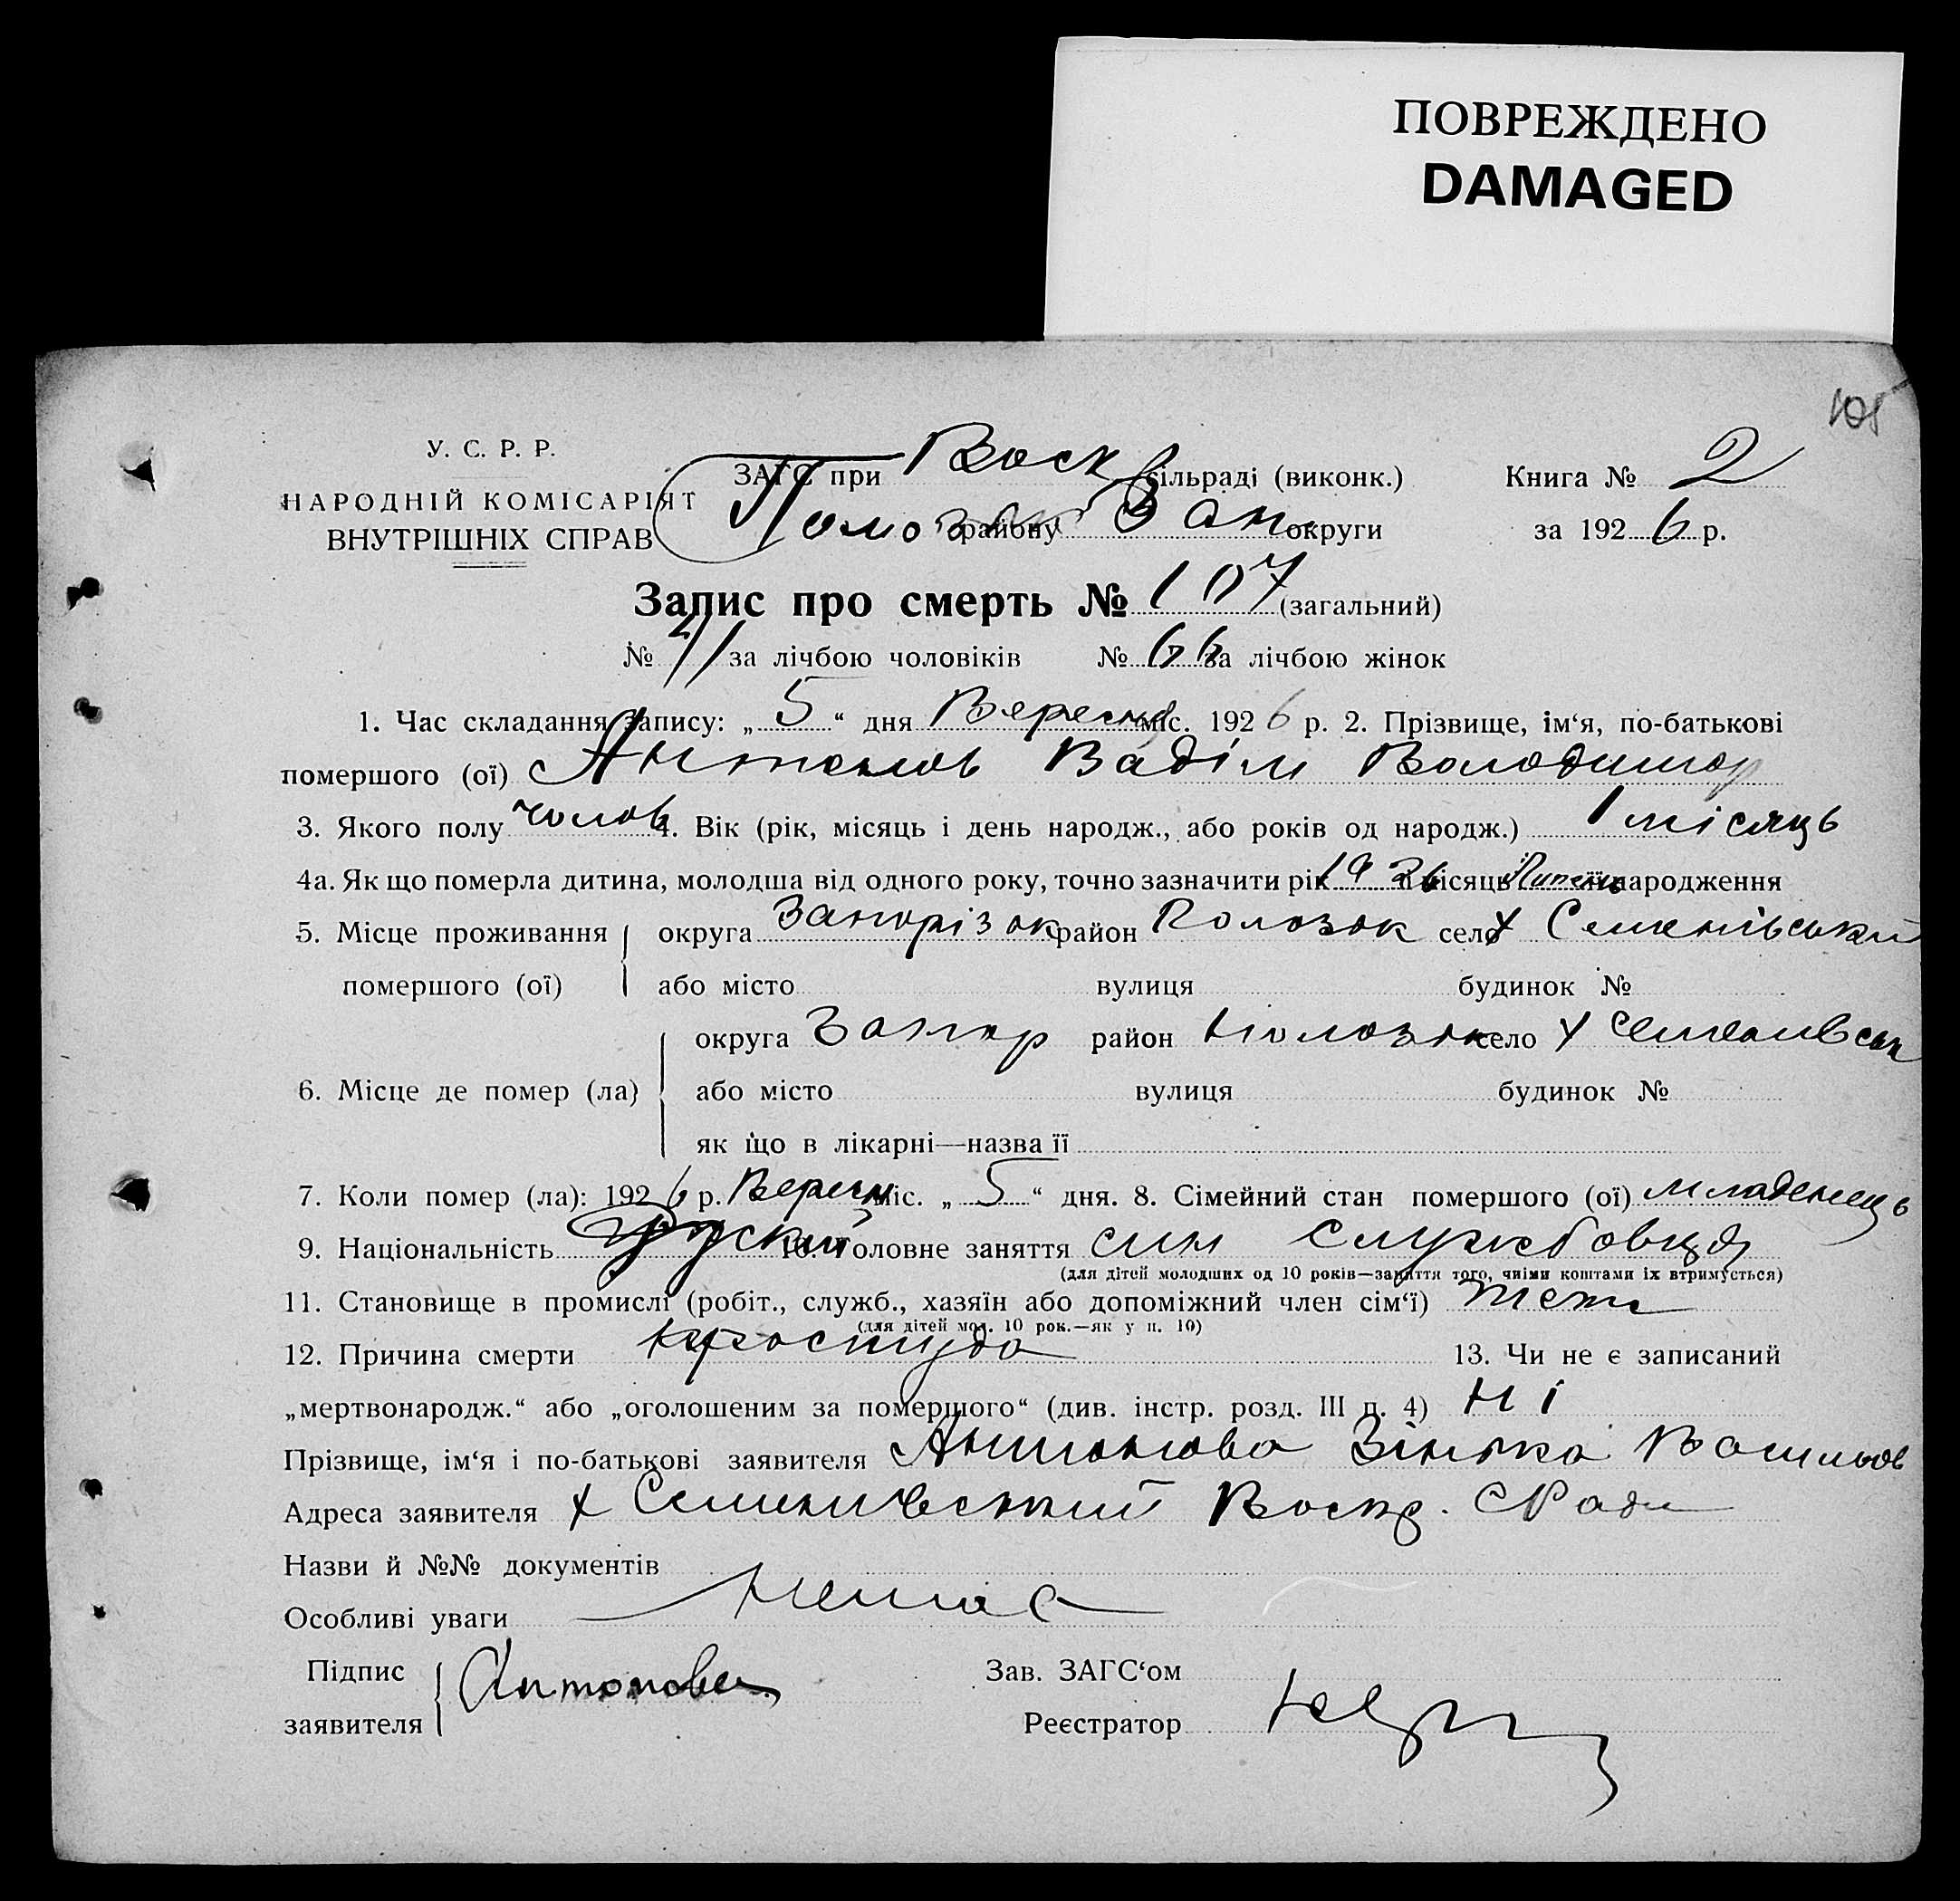 ПОВРЕЖДЕНО
DAMAGED
105
У. С. Р. Р.
НАРОДНІЙ КОМІСАРІЯТ
ВНУТРІШНІХ СПРАВ
ЗАГС при Воск сільраді (виконк.)
Полоз району Зап округи
Книга № 2
за 1926 р.
Запис про смерть № 107 (загальний)
№ 41 за лічбою чоловіків № 66 за лічбою жінок
1. Час складання запису: „ 5 “ дня Вересня міс. 1926 р. 2. Прізвище, ім‘я, по-батькові
помершого (ої) Антонов Вадім Володимир
3. Якого полу чолов 4. Вік (рік, місяць і день народж., або років од народж.) 1 місяць
4а. Як що померла дитина, молодша від одного року, точно зазначити рік 1926 й місяць Липень її народження
5. Місце проживання помершого (ої) округа Запорізок район Полозок село х Семенівський
або місто вулиця будинок №
6. Місце де помер (ла) округа Запор район Полозок село х Семенівськ
або місто вулиця будинок №
як що в лікарні—назва її
7. Коли помер (ла): 1926 р. Вересн міс. „ 5 “ дня. 8. Сімейний стан помершого (ої) младенець
9. Національність руский 10. Головне заняття син службовця
(для дітей молодших од 10 років—заняття того, чиїми коштами їх втримується)
11. Становище в промислі (робіт., служб., хазяїн або допоміжний член сім‘ї) теж
(для дітей мол. 10 рок.—як у п. 10)
12. Причина смерти простуда 13. Чи не є записаний
„мертвонародж.“ або „оголошеним за помершого“ (див. інстр. розд. III п. 4) Ні
Прізвище, ім‘я і по-батькові заявителя Антонова Зінька Васильов
Адреса заявителя х Семенівський Воскр. СРади
Назви й №№ документів
Особливі уваги немає
Підпис заявителя Антонова
Зав. ЗАГС‘ом
Реєстратор